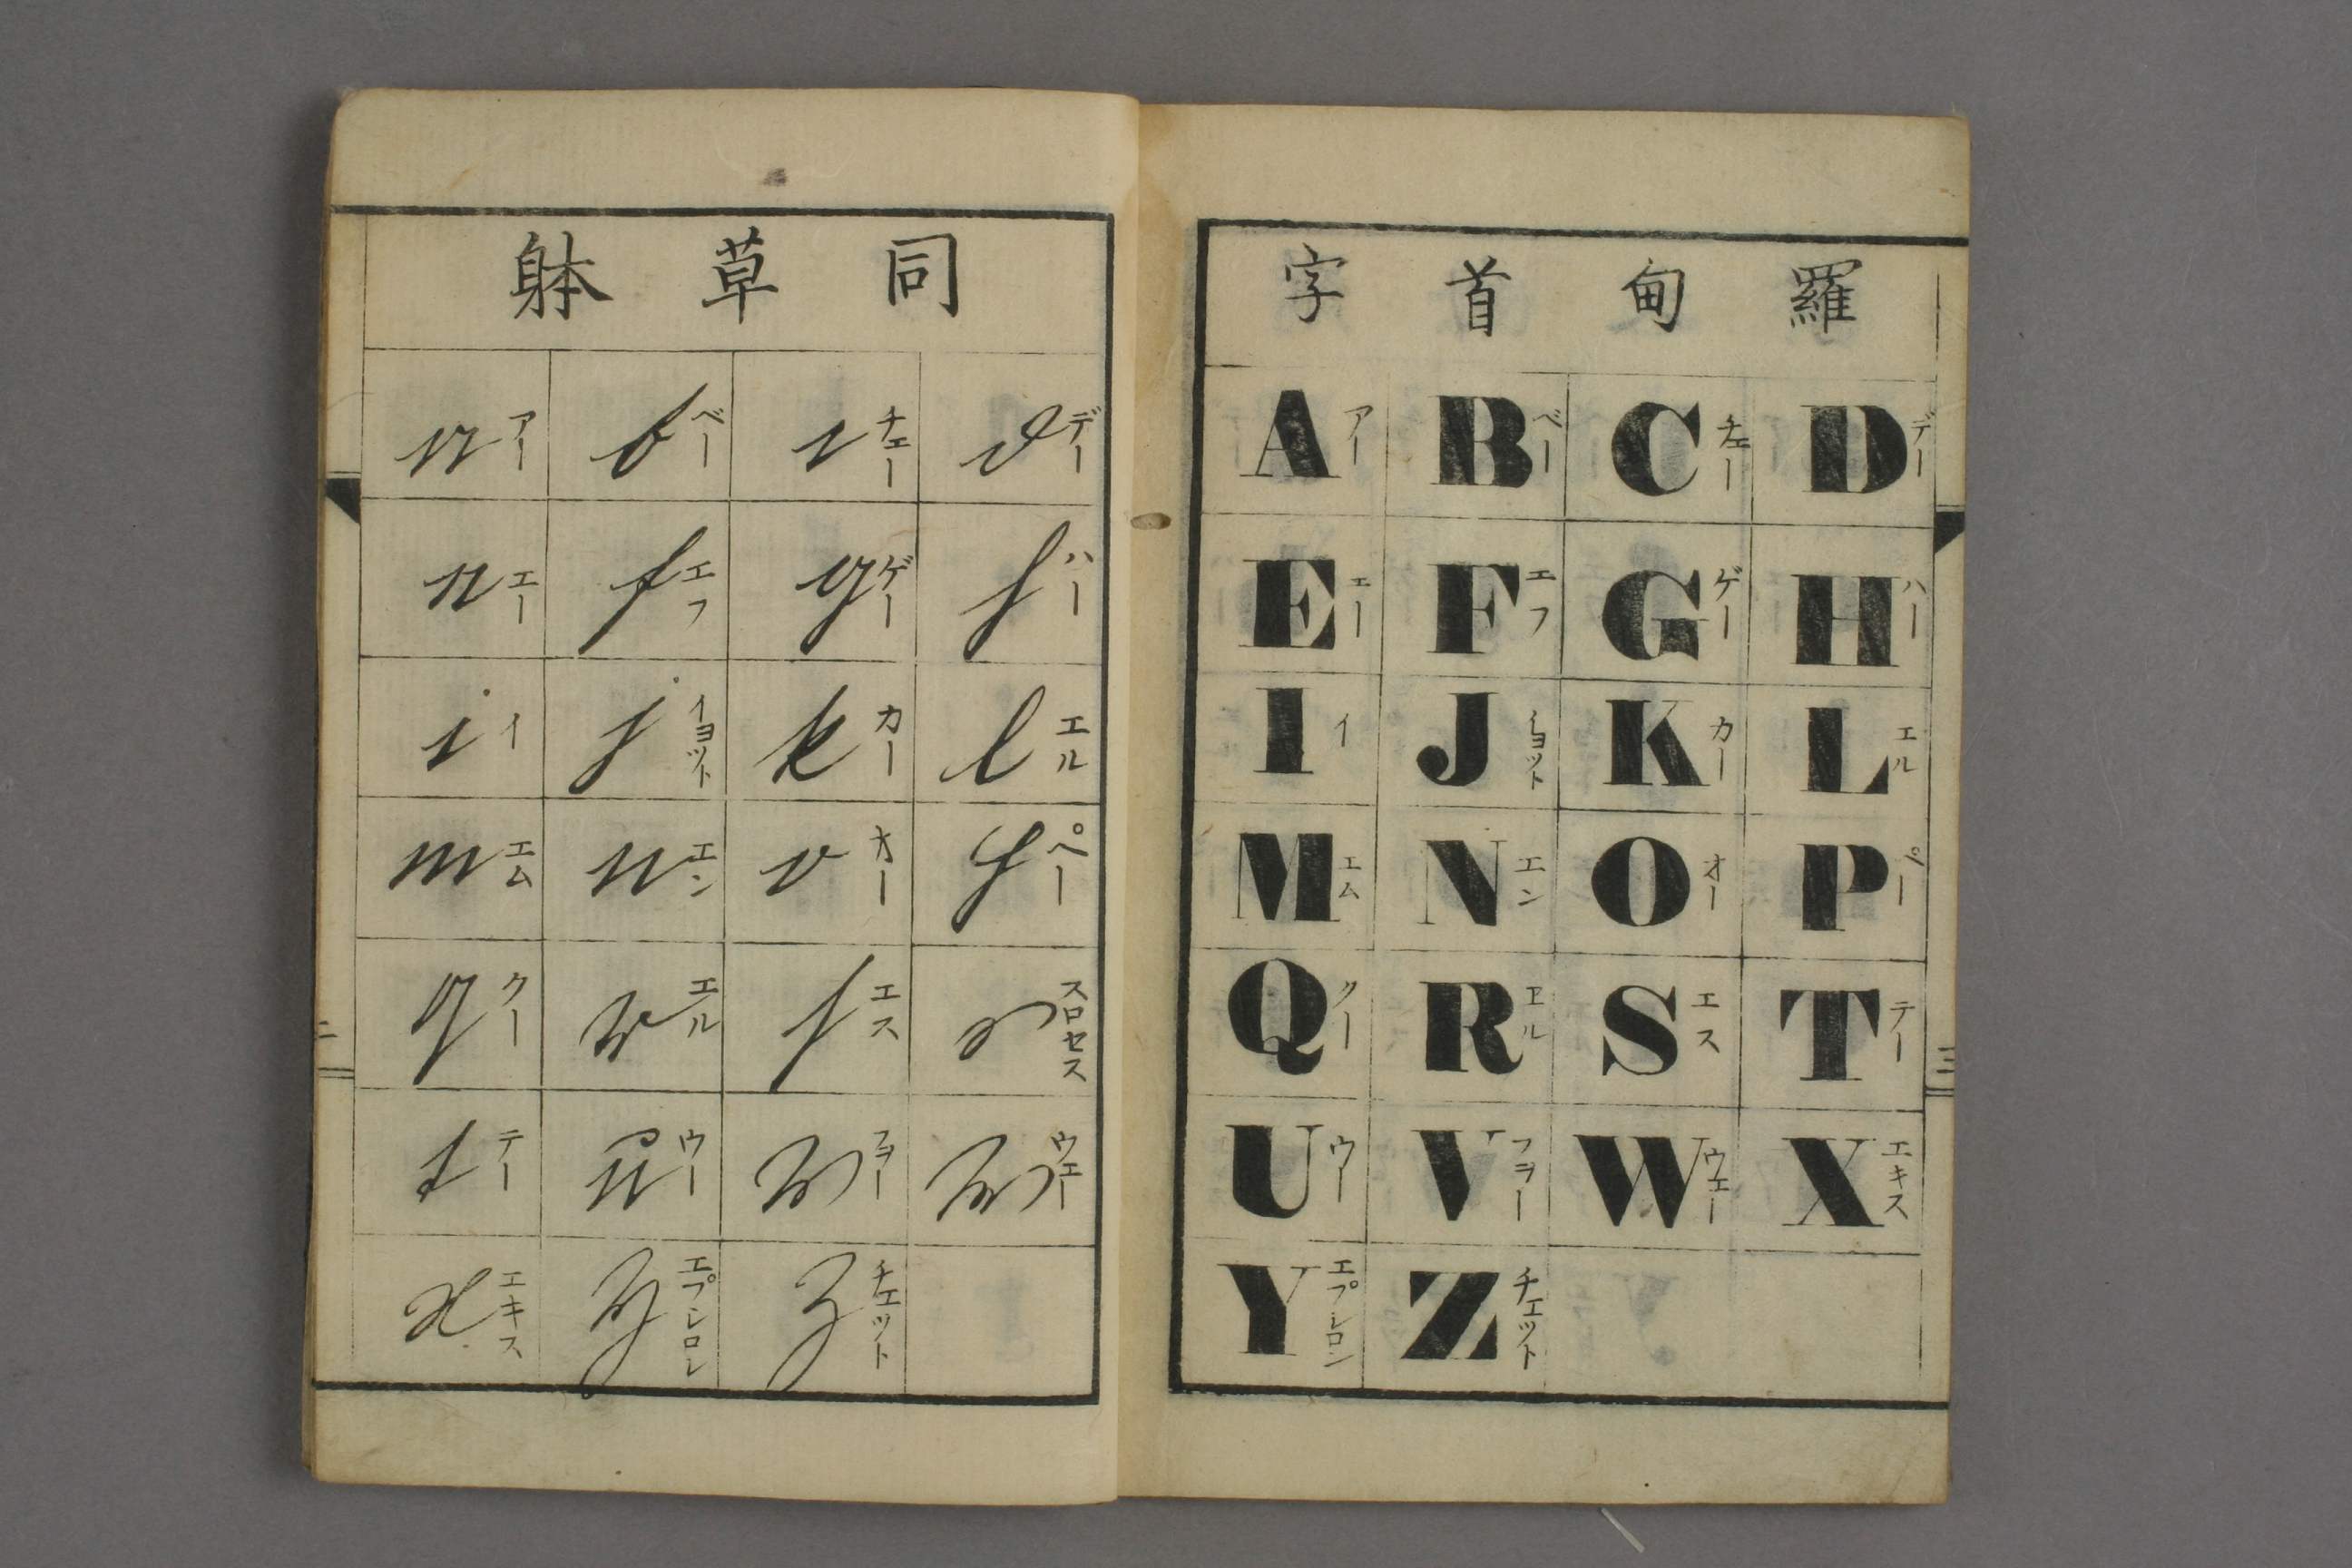 羅甸首字
A アー B ベー C チェー D デー
E エー F エフ G ゲー H ハー
I イ J イヨツト K カー L エル
M エム N エン O オー P ペー
Q クー R エル S エス T テー
U ウー V フラー W ウエー X エキス
Y エプシロン Z チェツト
三
同草躰
a アー b ベー c チェー d デー
e エー f エフ g ゲー h ハー
i イ j イヨツト k カー l エル
m エム n エン o オー p ペー
q クー r エル ſ エス s スロセス
t テー u ウー v フラー w ウエー
x エキス y エプシロン z チェツト
二